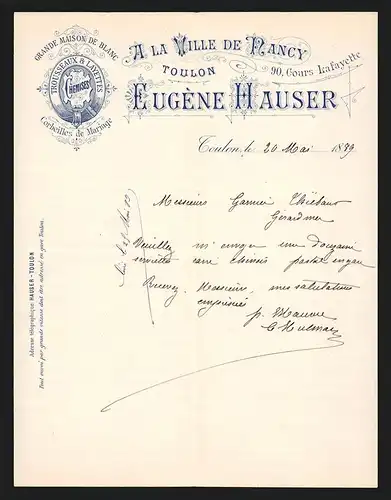 GRANDE MAISON DE BLANC
TROUSSEAUX & LAYETTES
CHEMISES
Corbeilles de Mariage
A LA VILLE DE NANCY
TOULON
90, Cours Lafayette
EUGÈNE HAUSER
Toulon, le 20 Mai 1889
Messieurs Garnier Thiébaut
Gérardmer
Veuillez m'envoyer une douzaine
serviettes
Recevez Messieurs, mes salutations
empressées
p. Hauser
Adresse télégraphique HAUSER-TOULON
Tout envoi par grande vitesse doit être adressé en gare Toulon.